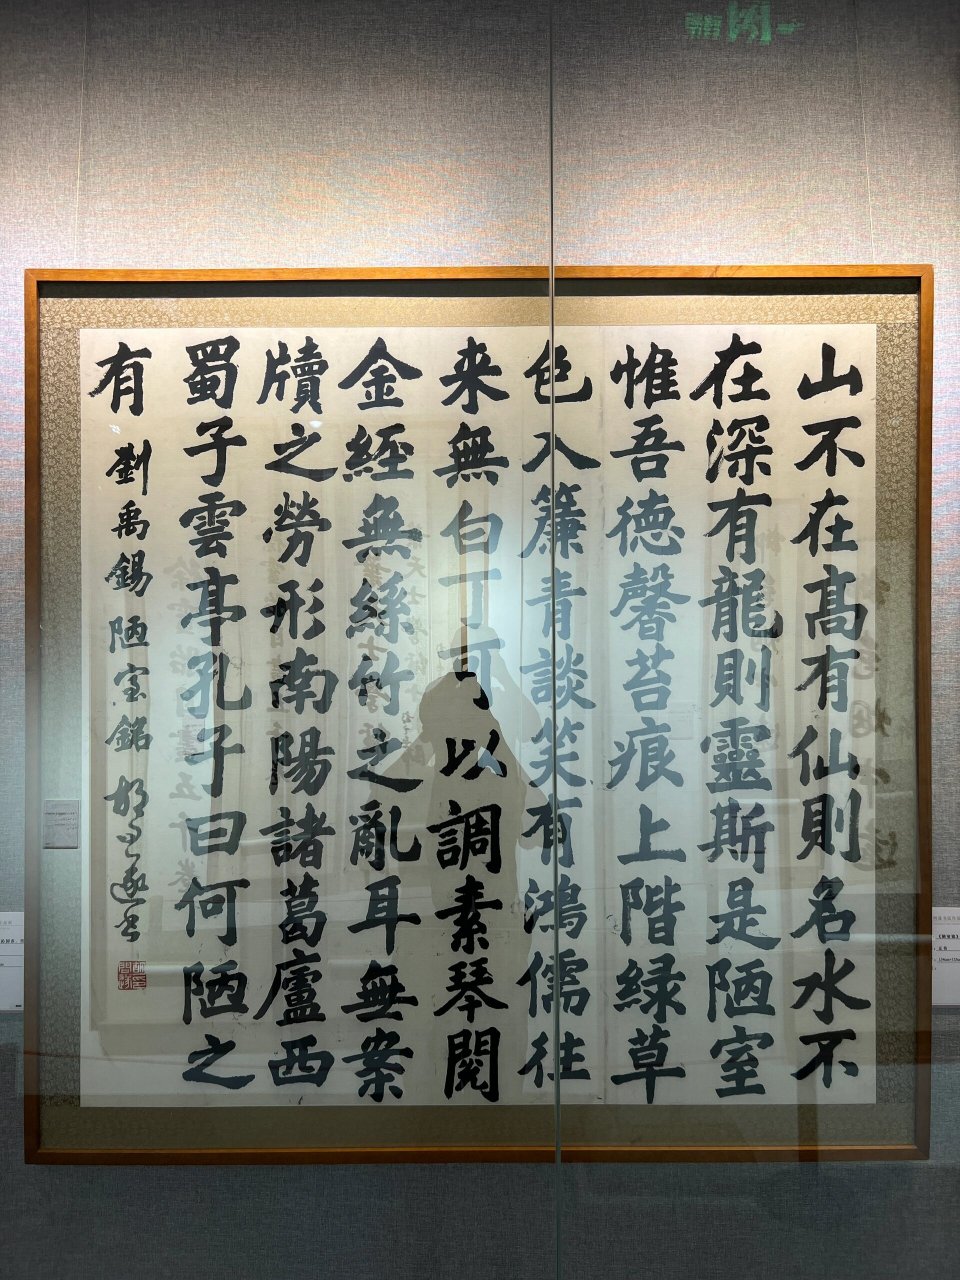 山不在髙有仙則名水不
在深有龍則靈斯是陋室
惟吾德馨苔痕上階緑草
色入簾青談笑有鴻儒往
来無白丁可以調素琴閱
金経無絲竹之亂耳無案
牘之勞形南陽諸葛廬西
蜀子雲亭孔子曰何陋之
有
劉禹錫陋室銘胡问遂书